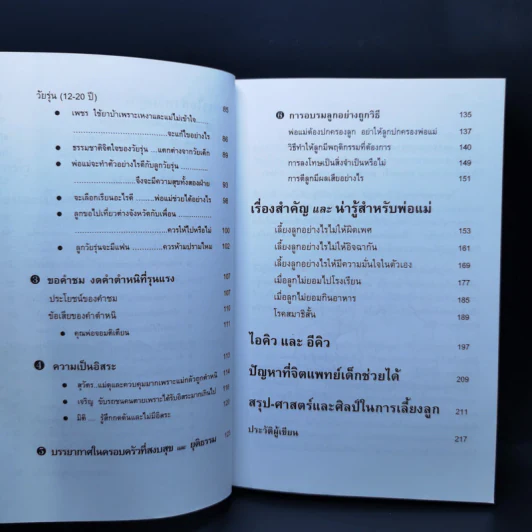 วัยรุ่น (12-20 ปี)
● เพชร ใช้ยาบ้าเพราะเหงาและแม่ไม่เข้าใจ..........
....................จะแก้ไขอย่างไร 88
● ธรรมชาติจิตใจของวัยรุ่น ...แตกต่างจากวัยเด็ก 89
● พ่อแม่จะทำตัวอย่างไรดีกับลูกวัยรุ่น ..............
....................จึงจะมีความสุขทั้งสองฝ่าย 90
● จะเลือกเรียนอะไรดี .......... พ่อแม่ช่วยได้อย่างไร 98
● ลูกขอไปเที่ยวต่างจังหวัดกับเพื่อน ..............
....................ควรให้ไปหรือไม่ 100
● ลูกวัยรุ่นจะมีแฟน ..........ควรห้ามปรามไหม 102
❸ ขอคำชม งดคำตำหนิที่รุนแรง 107
ประโยชน์ของคำชม 107
ข้อเสียของคำตำหนิ 111
● คุณพ่อจอมติเตียน 111
❹ ความเป็นอิสระ
● สุวัตร...แม่ดุและควบคุมมากเพราะแม่กลัวถูกตำหนิ
● เจริญ ขับรถชนคนตายเพราะได้รับอิสระมากเกินไป
● มิติ ... รู้สึกกดดันและไม่มีอิสระ
❺ บรรยากาศในครอบครัวที่สงบสุข และ ยุติธรรม
❻ การอบรมลูกอย่างถูกวิธี 135
พ่อแม่ต้องปกครองลูก อย่าให้ลูกปกครองพ่อแม่ 137
วิธีทำให้ลูกมีพฤติกรรมที่ต้องการ 140
การลงโทษเป็นสิ่งจำเป็นหรือไม่ 149
การตีลูกมีผลเสียอย่างไร 151
เรื่องสำคัญ และ น่ารู้สำหรับพ่อแม่
เลี้ยงลูกอย่างไรไม่ให้ผิดเพศ 153
เลี้ยงลูกอย่างไรไม่ให้อิจฉากัน 161
เลี้ยงลูกอย่างไรให้มีความมั่นใจในตัวเอง 169
เมื่อลูกไม่ยอมไปโรงเรียน 177
เมื่อลูกไม่ยอมกินอาหาร 185
โรคสมาธิสั้น 189
ไอคิว และ อีคิว 197
ปัญหาที่จิตแพทย์เด็กช่วยได้ 209
สรุป-ศาสตร์และศิลป์ในการเลี้ยงลูก 211
ประวัติผู้เขียน 217